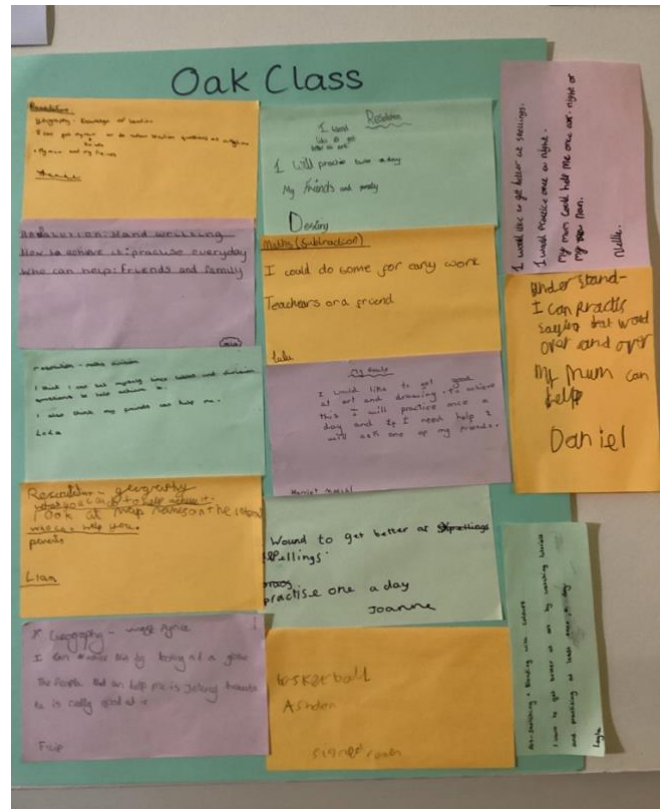 Oak Class
Resolution
Geography - Knowledge of
I can get my mum to do some questions
my mum and my friends
Resolution: Hand writing
How to achieve it: practise everyday
Who can help: Friends and family
resolution - maths division
I think I can
questions to help achieve it.
I also think my friends can help me.
Luca
Resolution - geography
what you can do to help achieve it.
look at map
parents
Liam
Geography -
I can by looking at a globe
The People that can help me is
is really good at it
Resolution
I want
like to get
better at art.
I will practise twice a day
My friends and family
Destiny
Maths (Subtraction)
I could do some for early work
Teachears or a friend
Lulu
I would like to get good
at art and drawing. to achieve
this I will practice once a
day and If I need help I
will ask one of my friends.
Wound to get better at
spellings.
practise one a day
Joanne
basketball
Ashden
I would like to get better at spellings.
I would practice once a night.
my mum could help me once a night or
my Nan.
Millie.
Understand-
I can practis
saying that word
over and over
My Mum can
help
Daniel
Art-sketching + Blending with colours
I want to get better at art by watching tutorials
and practising at least once a day
Layla